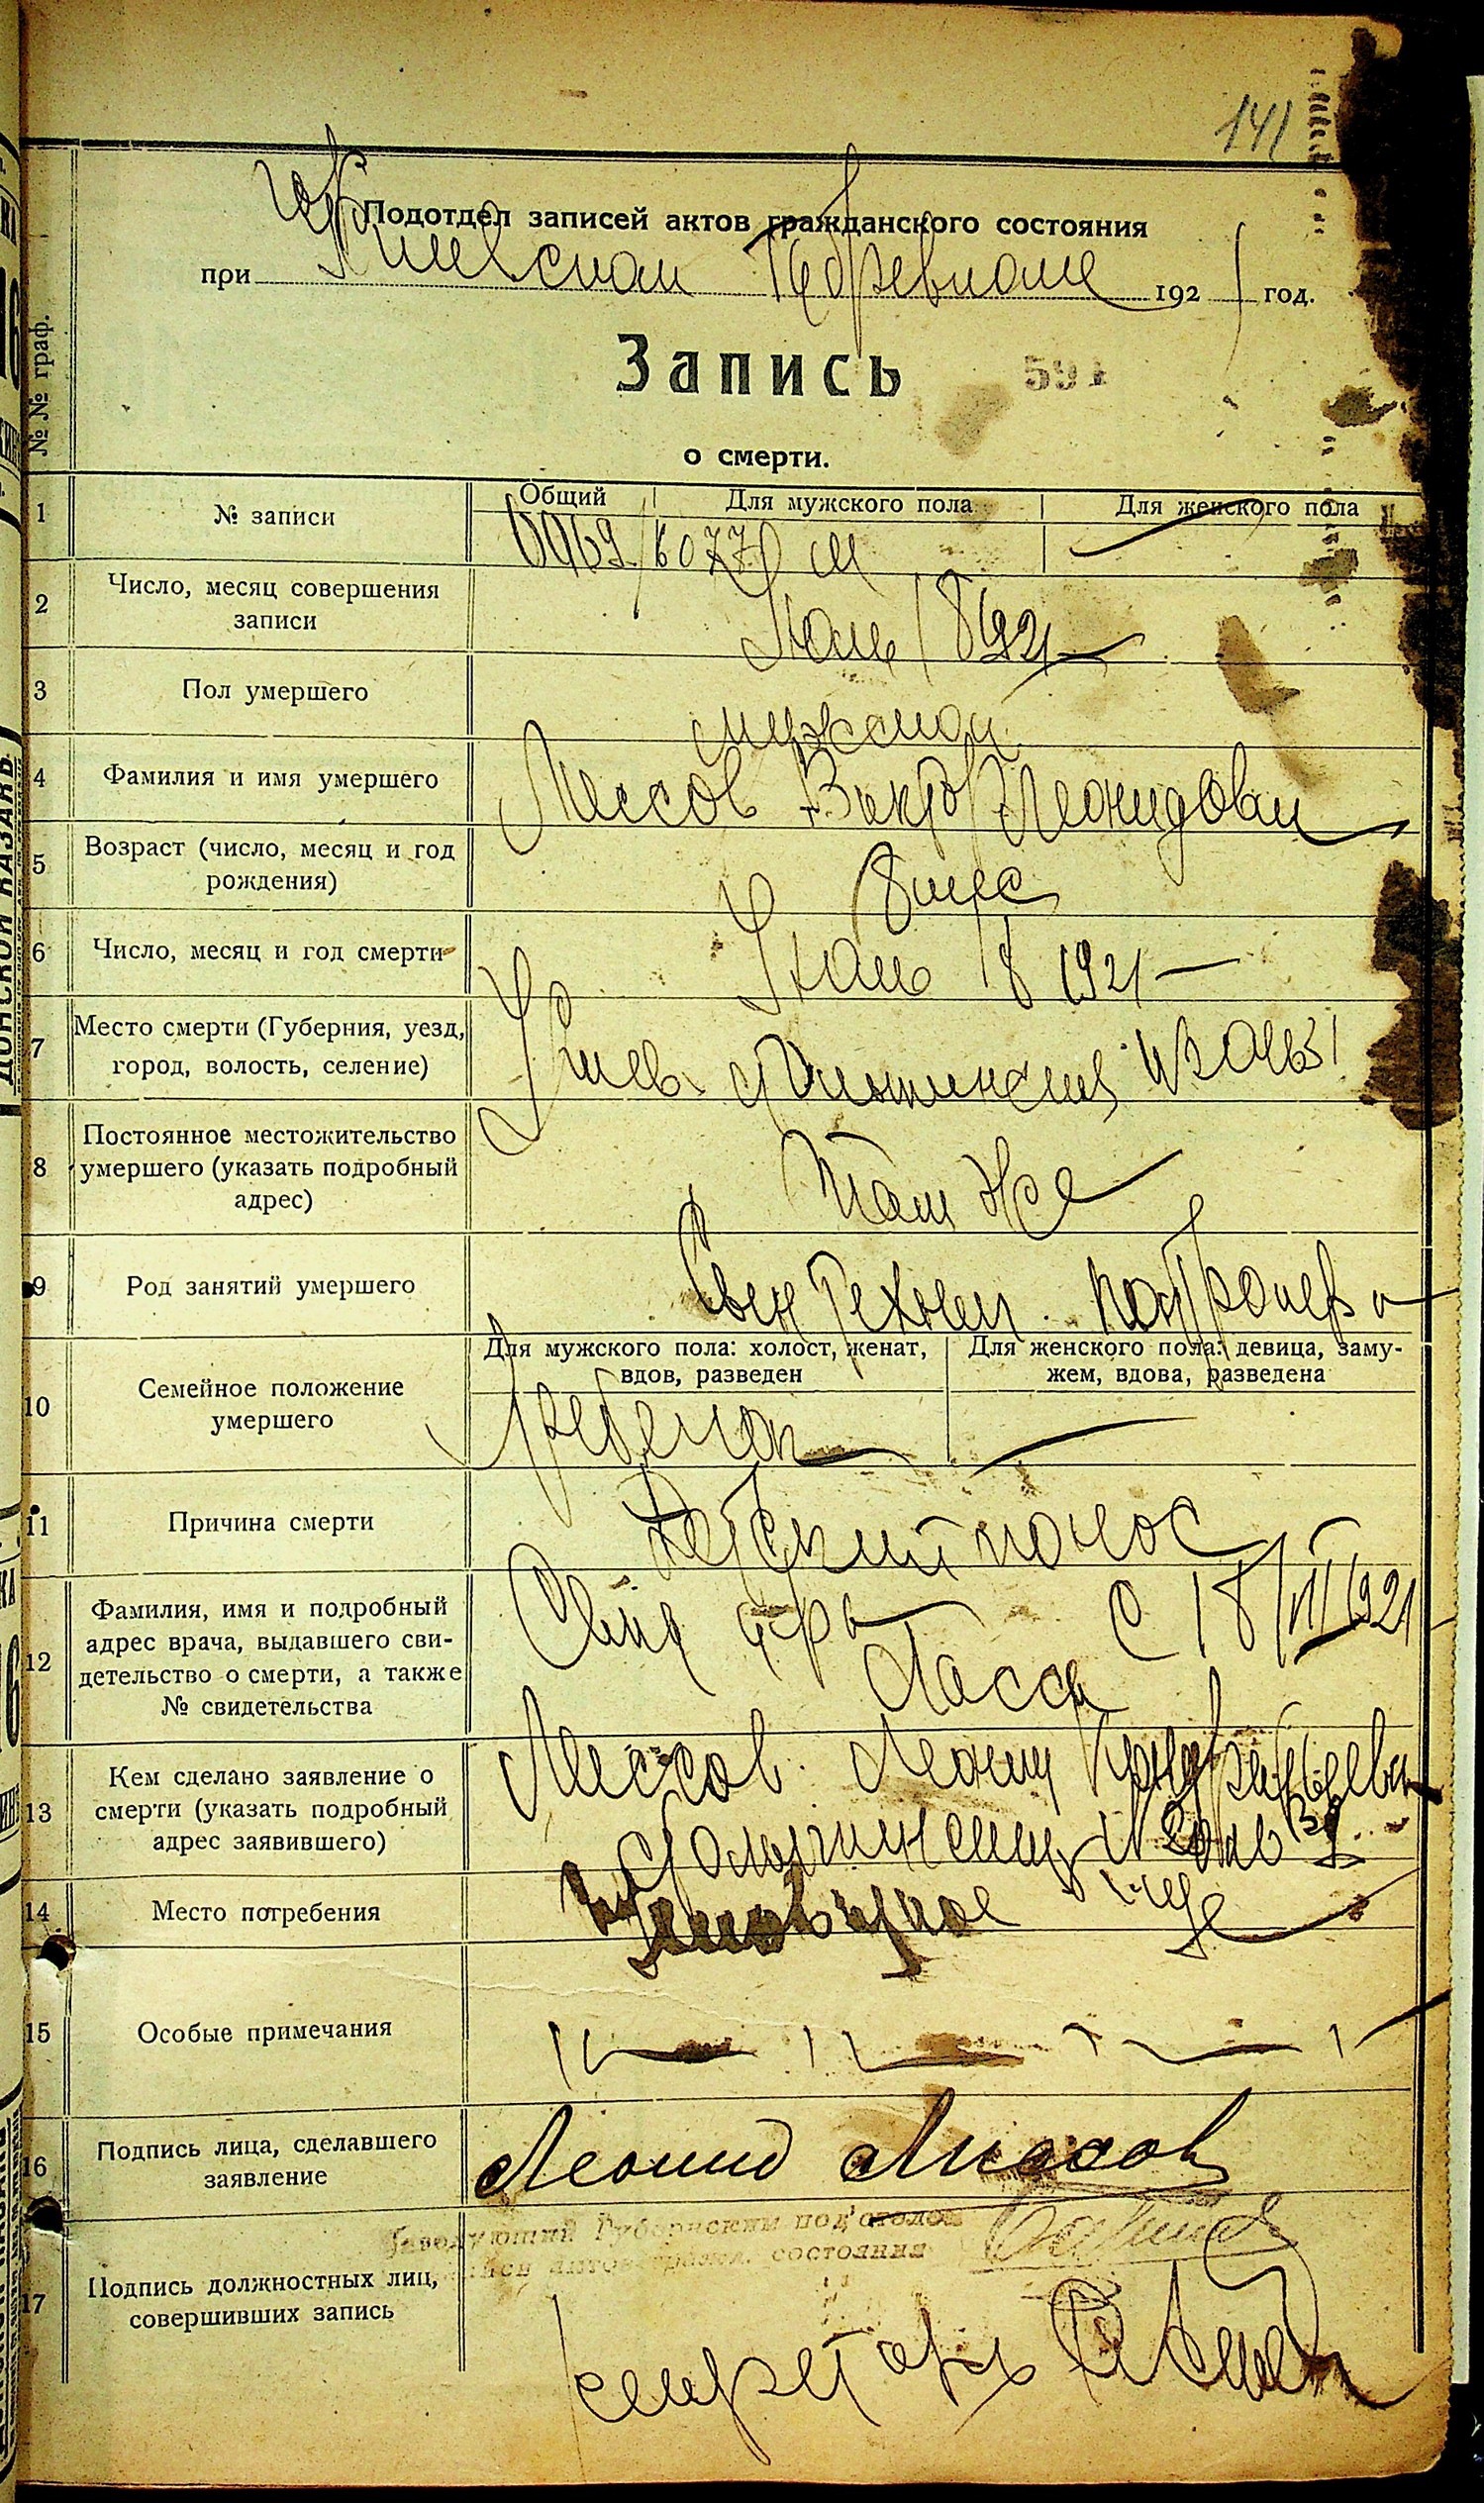 141
Подотдел записей актов гражданского состояния
при Киевском Губревкоме 1921 год.
Запись 591
о смерти.
№№ граф.
1 № записи
Общий Для мужского пола Для женского пола
2 Число, месяц совершения
записи
Июль 18 1921
3 Пол умершего
мужской
4 Фамилия и имя умершего
Лиссов Виктор Леонидович
5 Возраст (число, месяц и год
рождения)
8 мес
6 Число, месяц и год смерти
Июль 18 1921
7 Место смерти (Губерния, уезд,
город, волость, селение)
Киев
8 Постоянное местожительство
умершего (указать подробный
адрес)
Там же
9 Род занятий умершего
Сын Техник
10 Семейное положение
умершего
Для мужского пола: холост, женат,
вдов, разведен
Для женского пола: девица, заму-
жем, вдова, разведена
ребенок
11 Причина смерти
Детский понос
12 Фамилия, имя и подробный
адрес врача, выдавшего сви-
детельство о смерти, а также
№ свидетельства
Свид д-ра с 18/VII 1921
13 Кем сделано заявление о
смерти (указать подробный
адрес заявившего)
Лиссов Леонид
14 Место погребения
15 Особые примечания
16 Подпись лица, сделавшего
заявление
Леонид Лиссов
17 Подпись должностных лиц,
совершивших запись
Заведующий Губернским под'отделом
записи актов гражд. состояния
секретарь